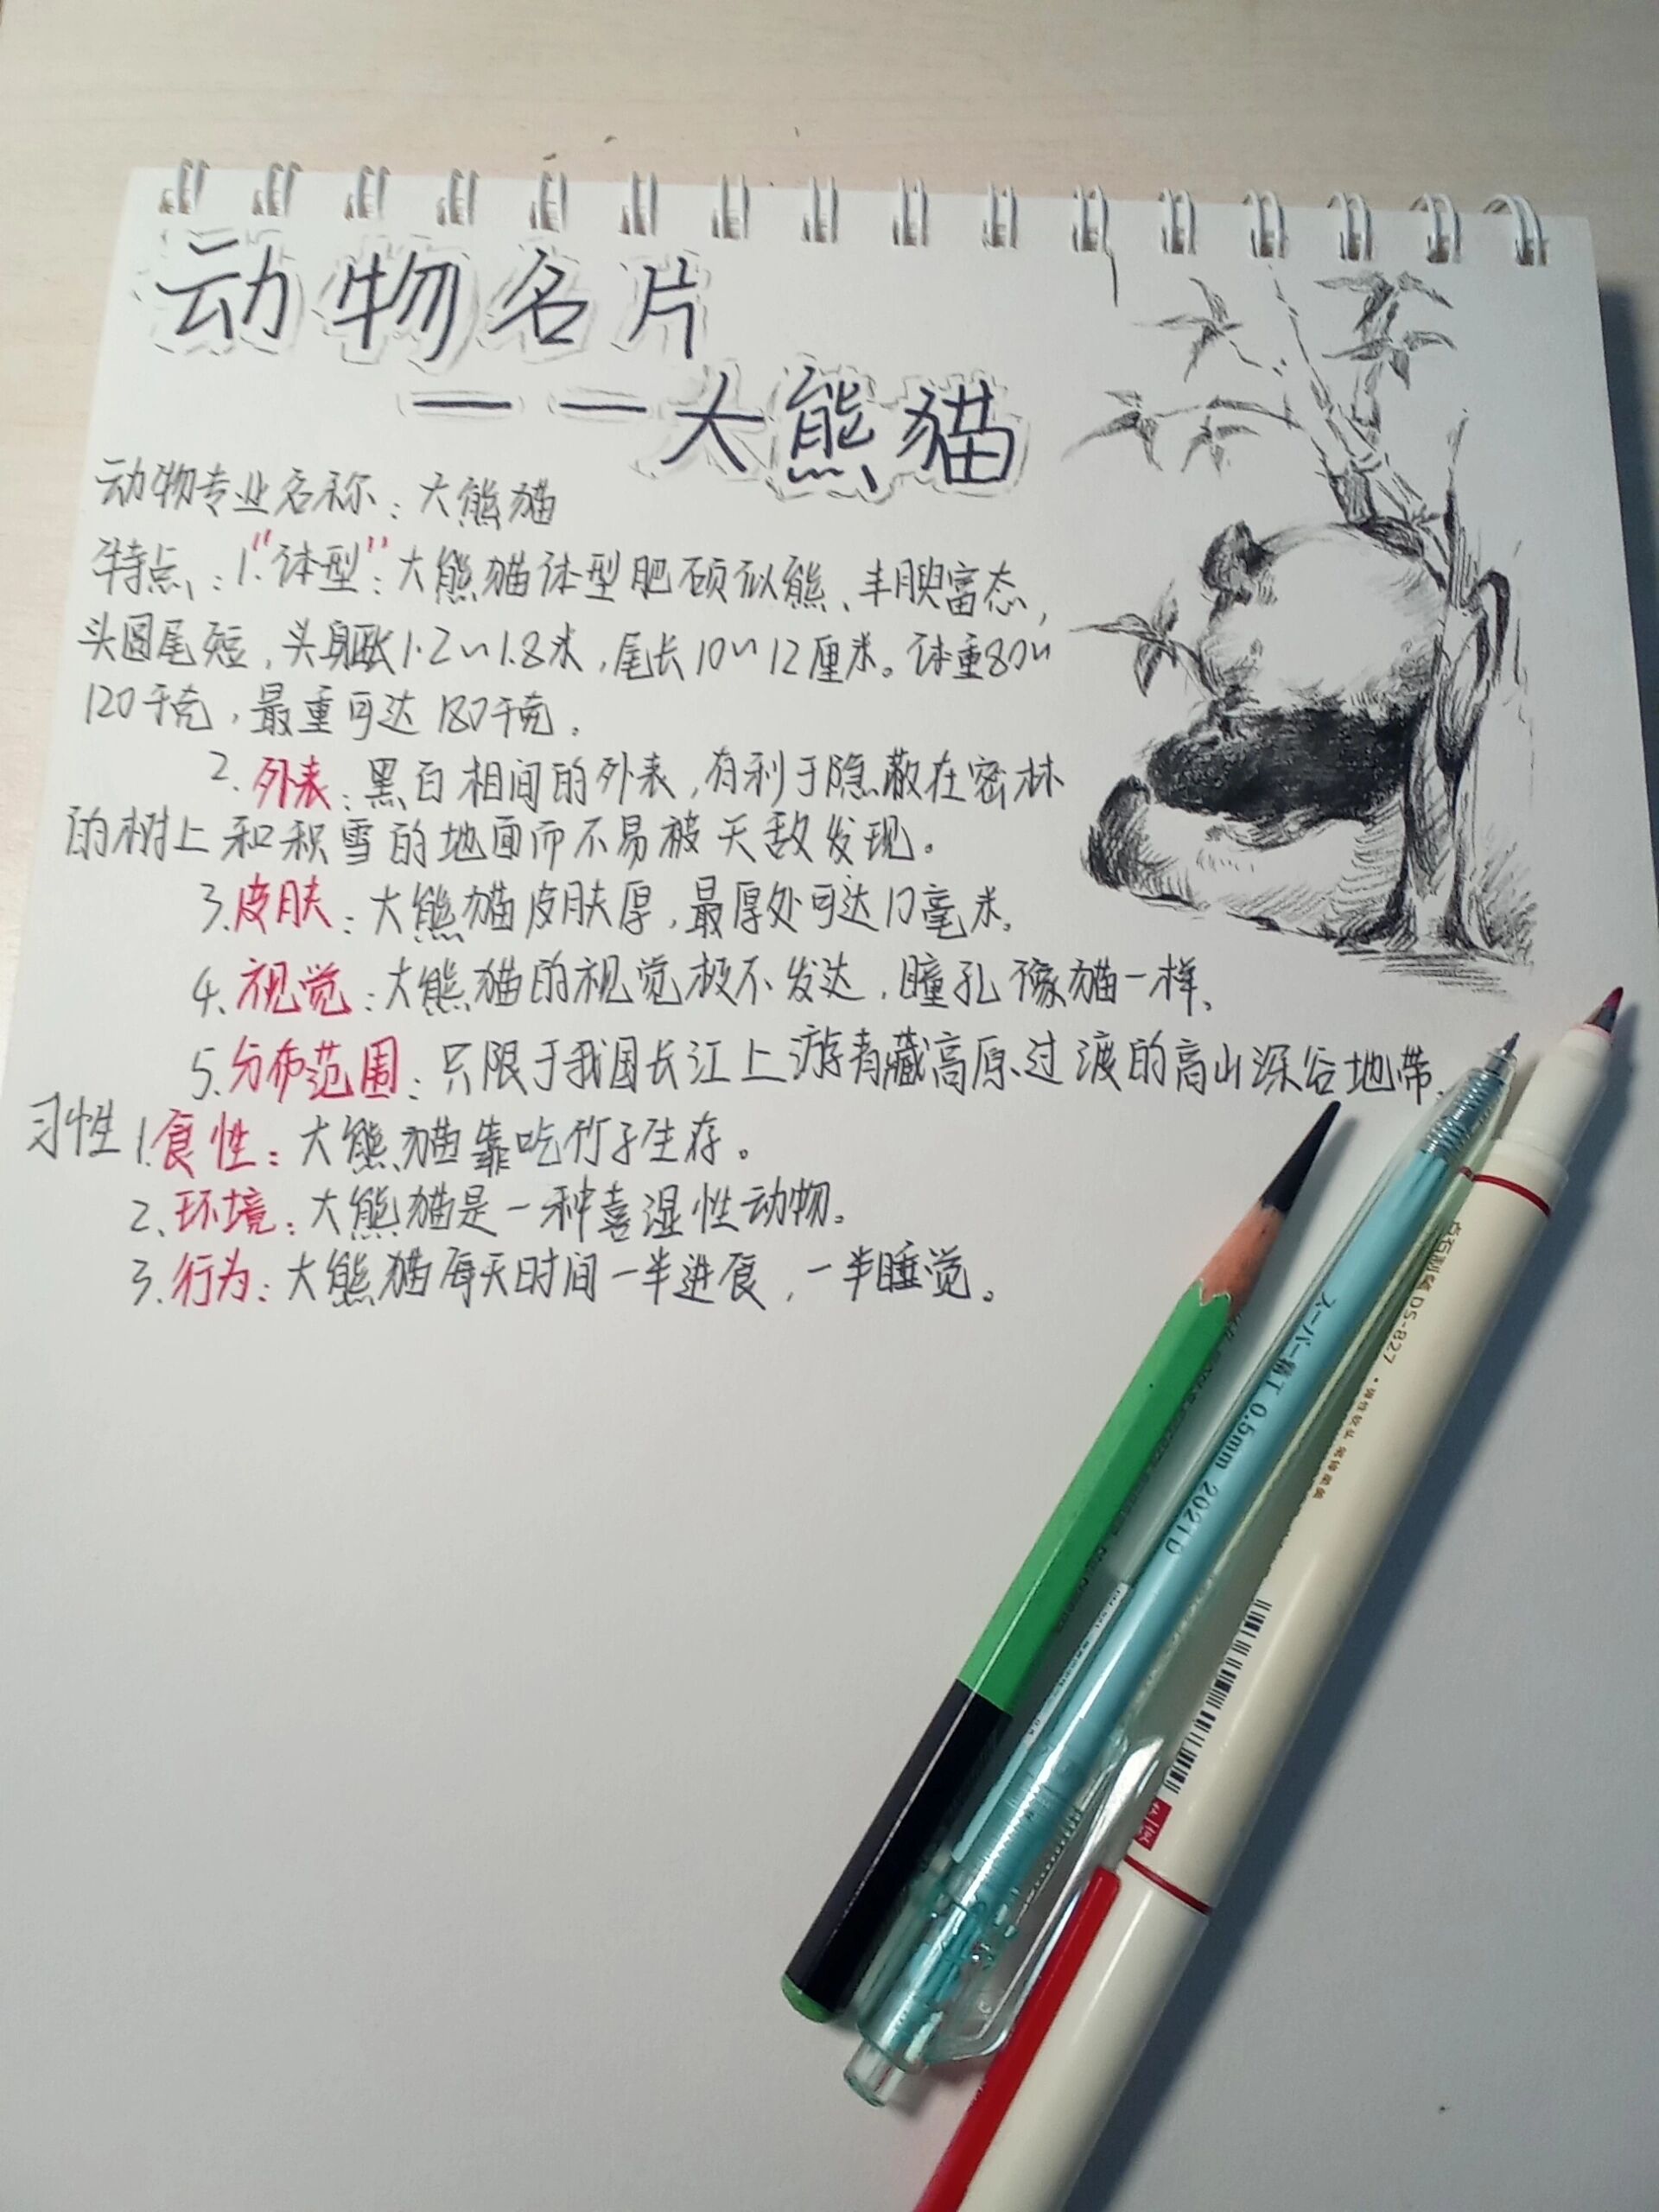 动物名片
——大熊猫
动物专业名称：大熊猫
特点：1.“体型”：大熊猫体型肥硕似熊、丰腴富态，
头圆尾短，头身长1.2~1.8米，尾长10~12厘米。体重80~
120千克，最重可达180千克。
2.外表：黑白相间的外表，有利于隐蔽在密林
的树上和积雪的地面而不易被天敌发现。
3.皮肤：大熊猫皮肤厚，最厚处可达10毫米。
4.视觉：大熊猫的视觉极不发达，瞳孔像猫一样。
5.分布范围：只限于我国长江上游青藏高原过渡的高山深谷地带.
习性1.食性：大熊猫靠吃竹子生存。
2、环境：大熊猫是一种喜湿性动物。
3.行为：大熊猫每天时间一半进食，一半睡觉。
0.5mm 2021D
DS-827